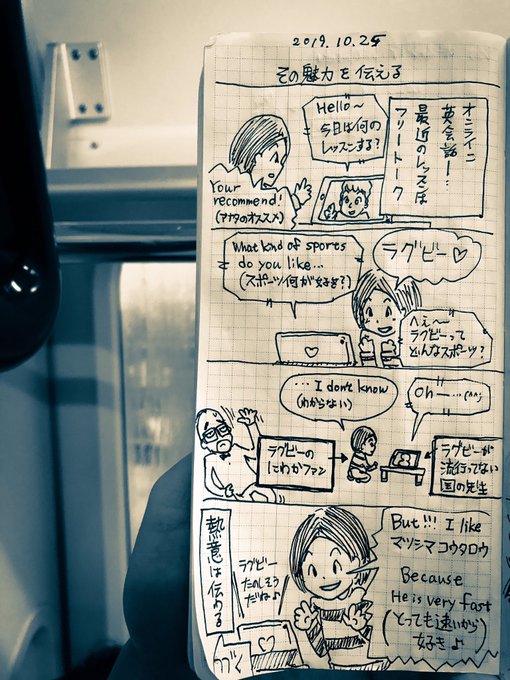 2019.10.25
その魅力を伝える
オンライン
英会話ー…
最近のレッスンは
フリートーク
Hello〜
今日は何の
レッスンする?
Your
recommend!
(アナタのオススメ)
What kind of sports
do you like…
(スポーツ何が好き?)
ラグビー♡
へぇ〜
ラグビーって
どんなスポーツ?
…I don't know
(わからない)
Oh―…(^^;
ラグビーの
にわかファン
ラグビーが
流行ってない
国の先生
But!!! I like
マツシマコウタロウ
Because
He is very fast
(とっても速いから
好き♪)
ラグビー
たのしそう
だね♪
熱意は伝わる